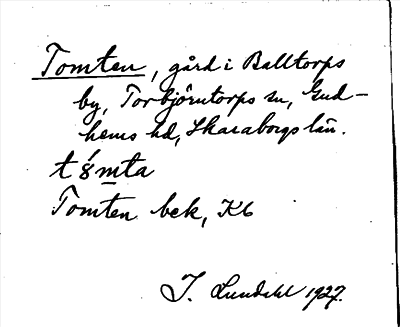 Tomten, gård i Balltorps
by, Torbjörntorps sn, Gud-
hems hd, Skaraborgs län.
t8́mta
Tomten bek, K6
I. Lundahl 1927.